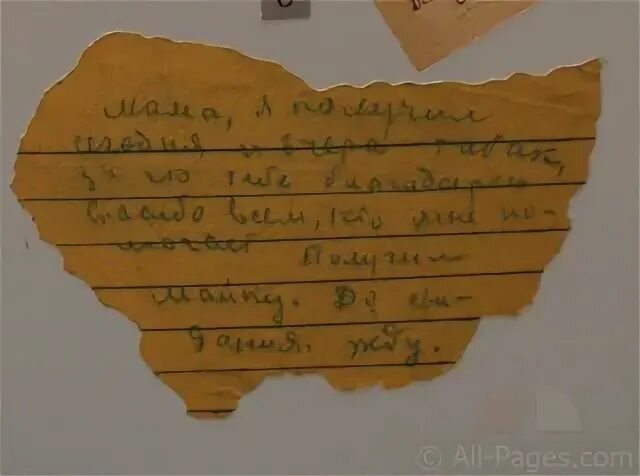 Мама, я получил
сегодня и вчера табак,
за что тебя благодарю
Спасибо всем, кто мне по-
могает Получил
майку. До сви-
дания. жду.
© All-Pages.com